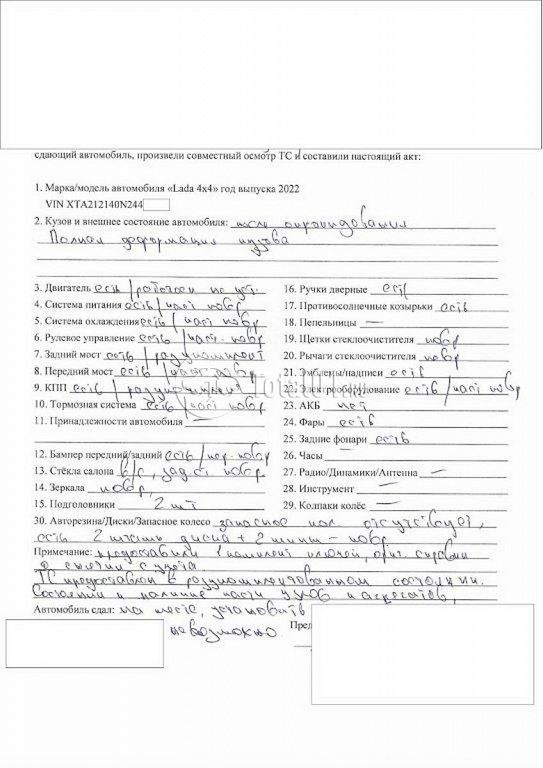 сдающий автомобиль, произвели совместный осмотр ТС и составили настоящий акт:
1. Марка/модель автомобиля «Lada 4x4» год выпуска 2022
VIN XTA212140N244
2. Кузов и внешнее состояние автомобиля:
Полная деформация кузова
3. Двигатель есть / рабочее не уст.
4. Система питания есть / част повр
5. Система охлаждения есть / част повр
6. Рулевое управление есть / част. повр
7. Задний мост есть / разукомплект
8. Передний мост есть / част повр
9. КПП есть / разукомплект
10. Тормозная система есть / част повр
11. Принадлежности автомобиля —
12. Бампер передний/задний есть / повр
13. Стёкла салона б/с, зад. ст повр
14. Зеркала повр,
15. Подголовники 2 шт
16. Ручки дверные есть
17. Противосолнечные козырьки есть
18. Пепельницы —
19. Щетки стеклоочистителя повр
20. Рычаги стеклоочистителя повр
21. Эмблемы/надписи есть
22. Электрооборудование есть / част повр
23. АКБ нет
24. Фары есть
25. Задние фонари есть
26. Часы —
27. Радио/Динамики/Антенна —
28. Инструмент —
29. Колпаки колёс —
30. Авторезина/Диски/Запасное колесо запасное кол отсутствует,
есть 2 диска + 2 шины - повр
Примечание: предоставили 1 комплект ключей, ориг. справки
о снятии с учета.
ТС предоставлен в разукомплектованном состоянии.
Состояние и наличие части узлов и агрегатов,
Автомобиль сдал: на месте, установить
невозможно
Пред